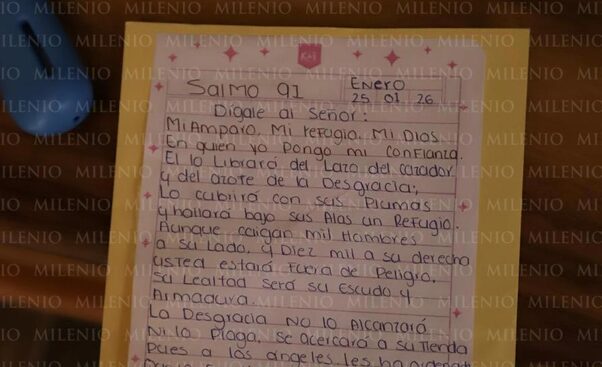 K+1
Salmo 91
Enero
25 01 26
Digale al Señor:
Mi Amparo. Mi refugio. Mi Dios
En quien yo Pongo mi Confianza.
El lo Librará del Lazo del cazador
y del azote de la Desgracia;
Lo cubrirá con sus Plumas
y hallará bajo sus Alas un Refugio.
Aunque caigan mil Hombres
a su Lado. y Diez mil a su derecha
usted estará fuera de Peligro.
Su Lealtad será su Escudo y
Armadura.
La Desgracia No lo Alcanzará
Ni la Plaga, se acercará a su tienda
Pues a los ángeles les ha
MILENIO